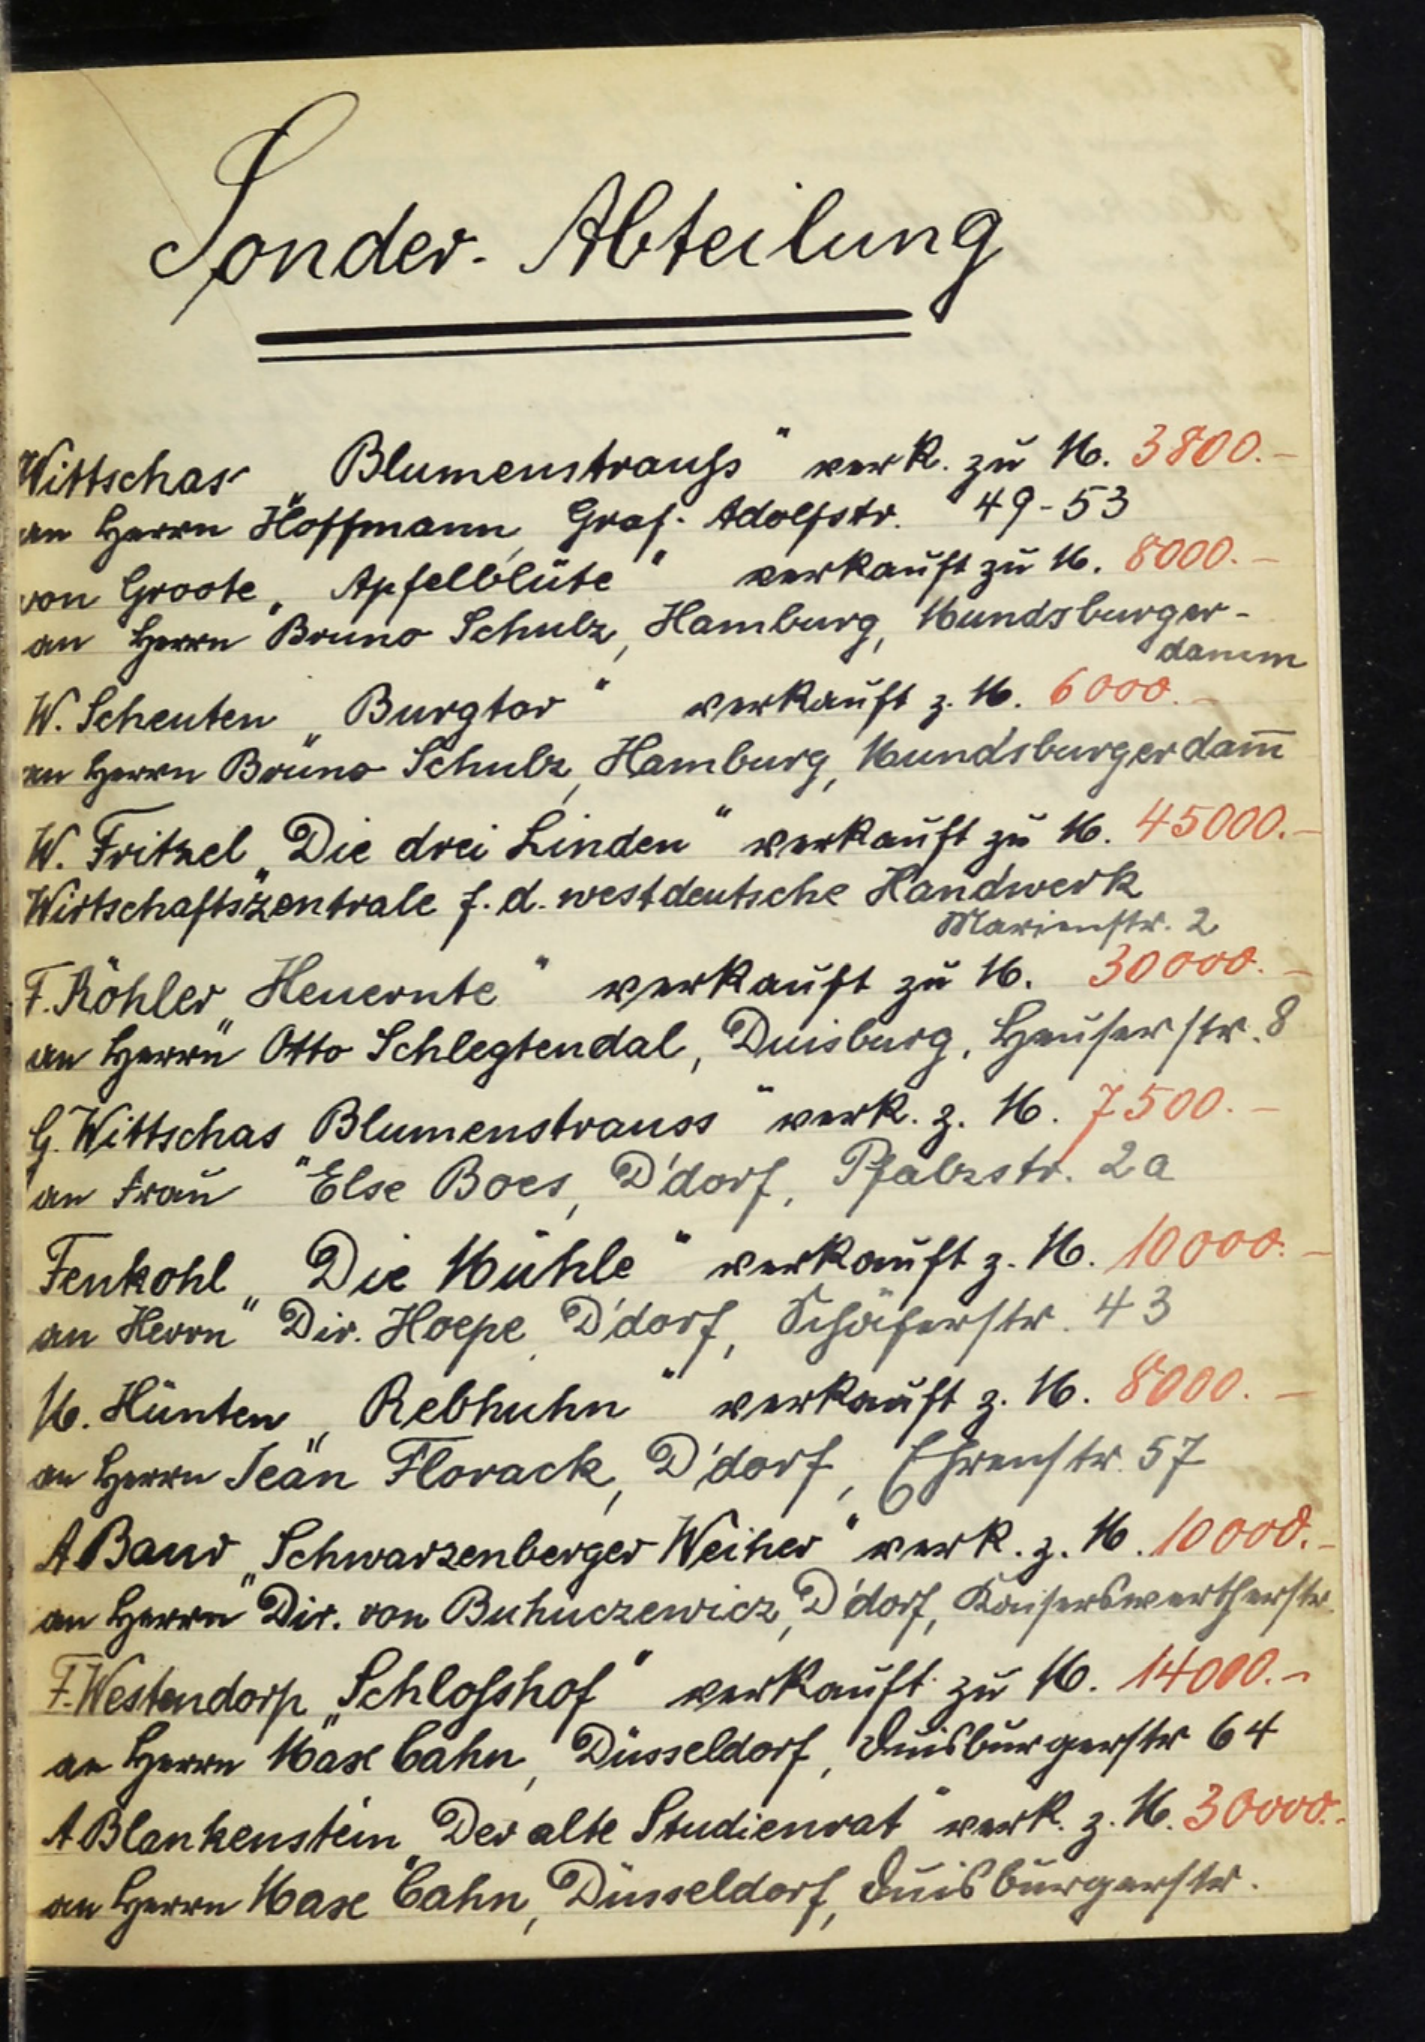 Sonder-Abteilung
Wittschas „Blumenstrauß" verk. zu M. 3800.–
an Herrn Hoffmann, Graf-Adolfstr. 49-53
von Groote „Apfelblüte" verkauft zu M. 8000.–
an Herrn Bruno Schulz, Hamburg, Mundsburger-
damm
W. Scheuten „Burgtor" verkauft z. M. 6000.–
an Herrn Bruno Schulz, Hamburg, Mundsburgerdam̅
W. Fritzel „Die drei Linden" verkauft zu M. 45000.–
Wirtschaftszentrale f. d. westdeutsche Handwerk
Marienstr. 2
F. Köhler „Heuernte" verkauft zu M. 30000.–
an Herrn Otto Schlegtendal, Duisburg, Heuserstr. 8
G. Wittschas „Blumenstrauss" verk. z. M. 7500.–
an Frau Else Boes, D'dorf, Pfalzstr. 2a
Fenkohl „Die Mühle" verkauft z. M. 10000.–
an Herrn Dir. Hoepe, D'dorf, Schäferstr. 43
M. Hünten „Rebhuhn" verkauft z. M. 8000.–
an Herrn Jean Florack, D'dorf, Ehrenstr. 57
A Baur „Schwarzenberger Weiher" verk. z. M. 10000.–
an Herrn Dir. von Buhuczewicz, D'dorf, Kaiserswertherstr.
F. Westendorp „Schloßhof" verkauft zu M. 14000.–
an Herrn Max Cahn, Düsseldorf, Duisburgerstr 64
A Blankenstein „Der alte Studienrat" verk. z. M. 30000.–
an Herrn Max Cahn, Düsseldorf, Duisburgerstr.